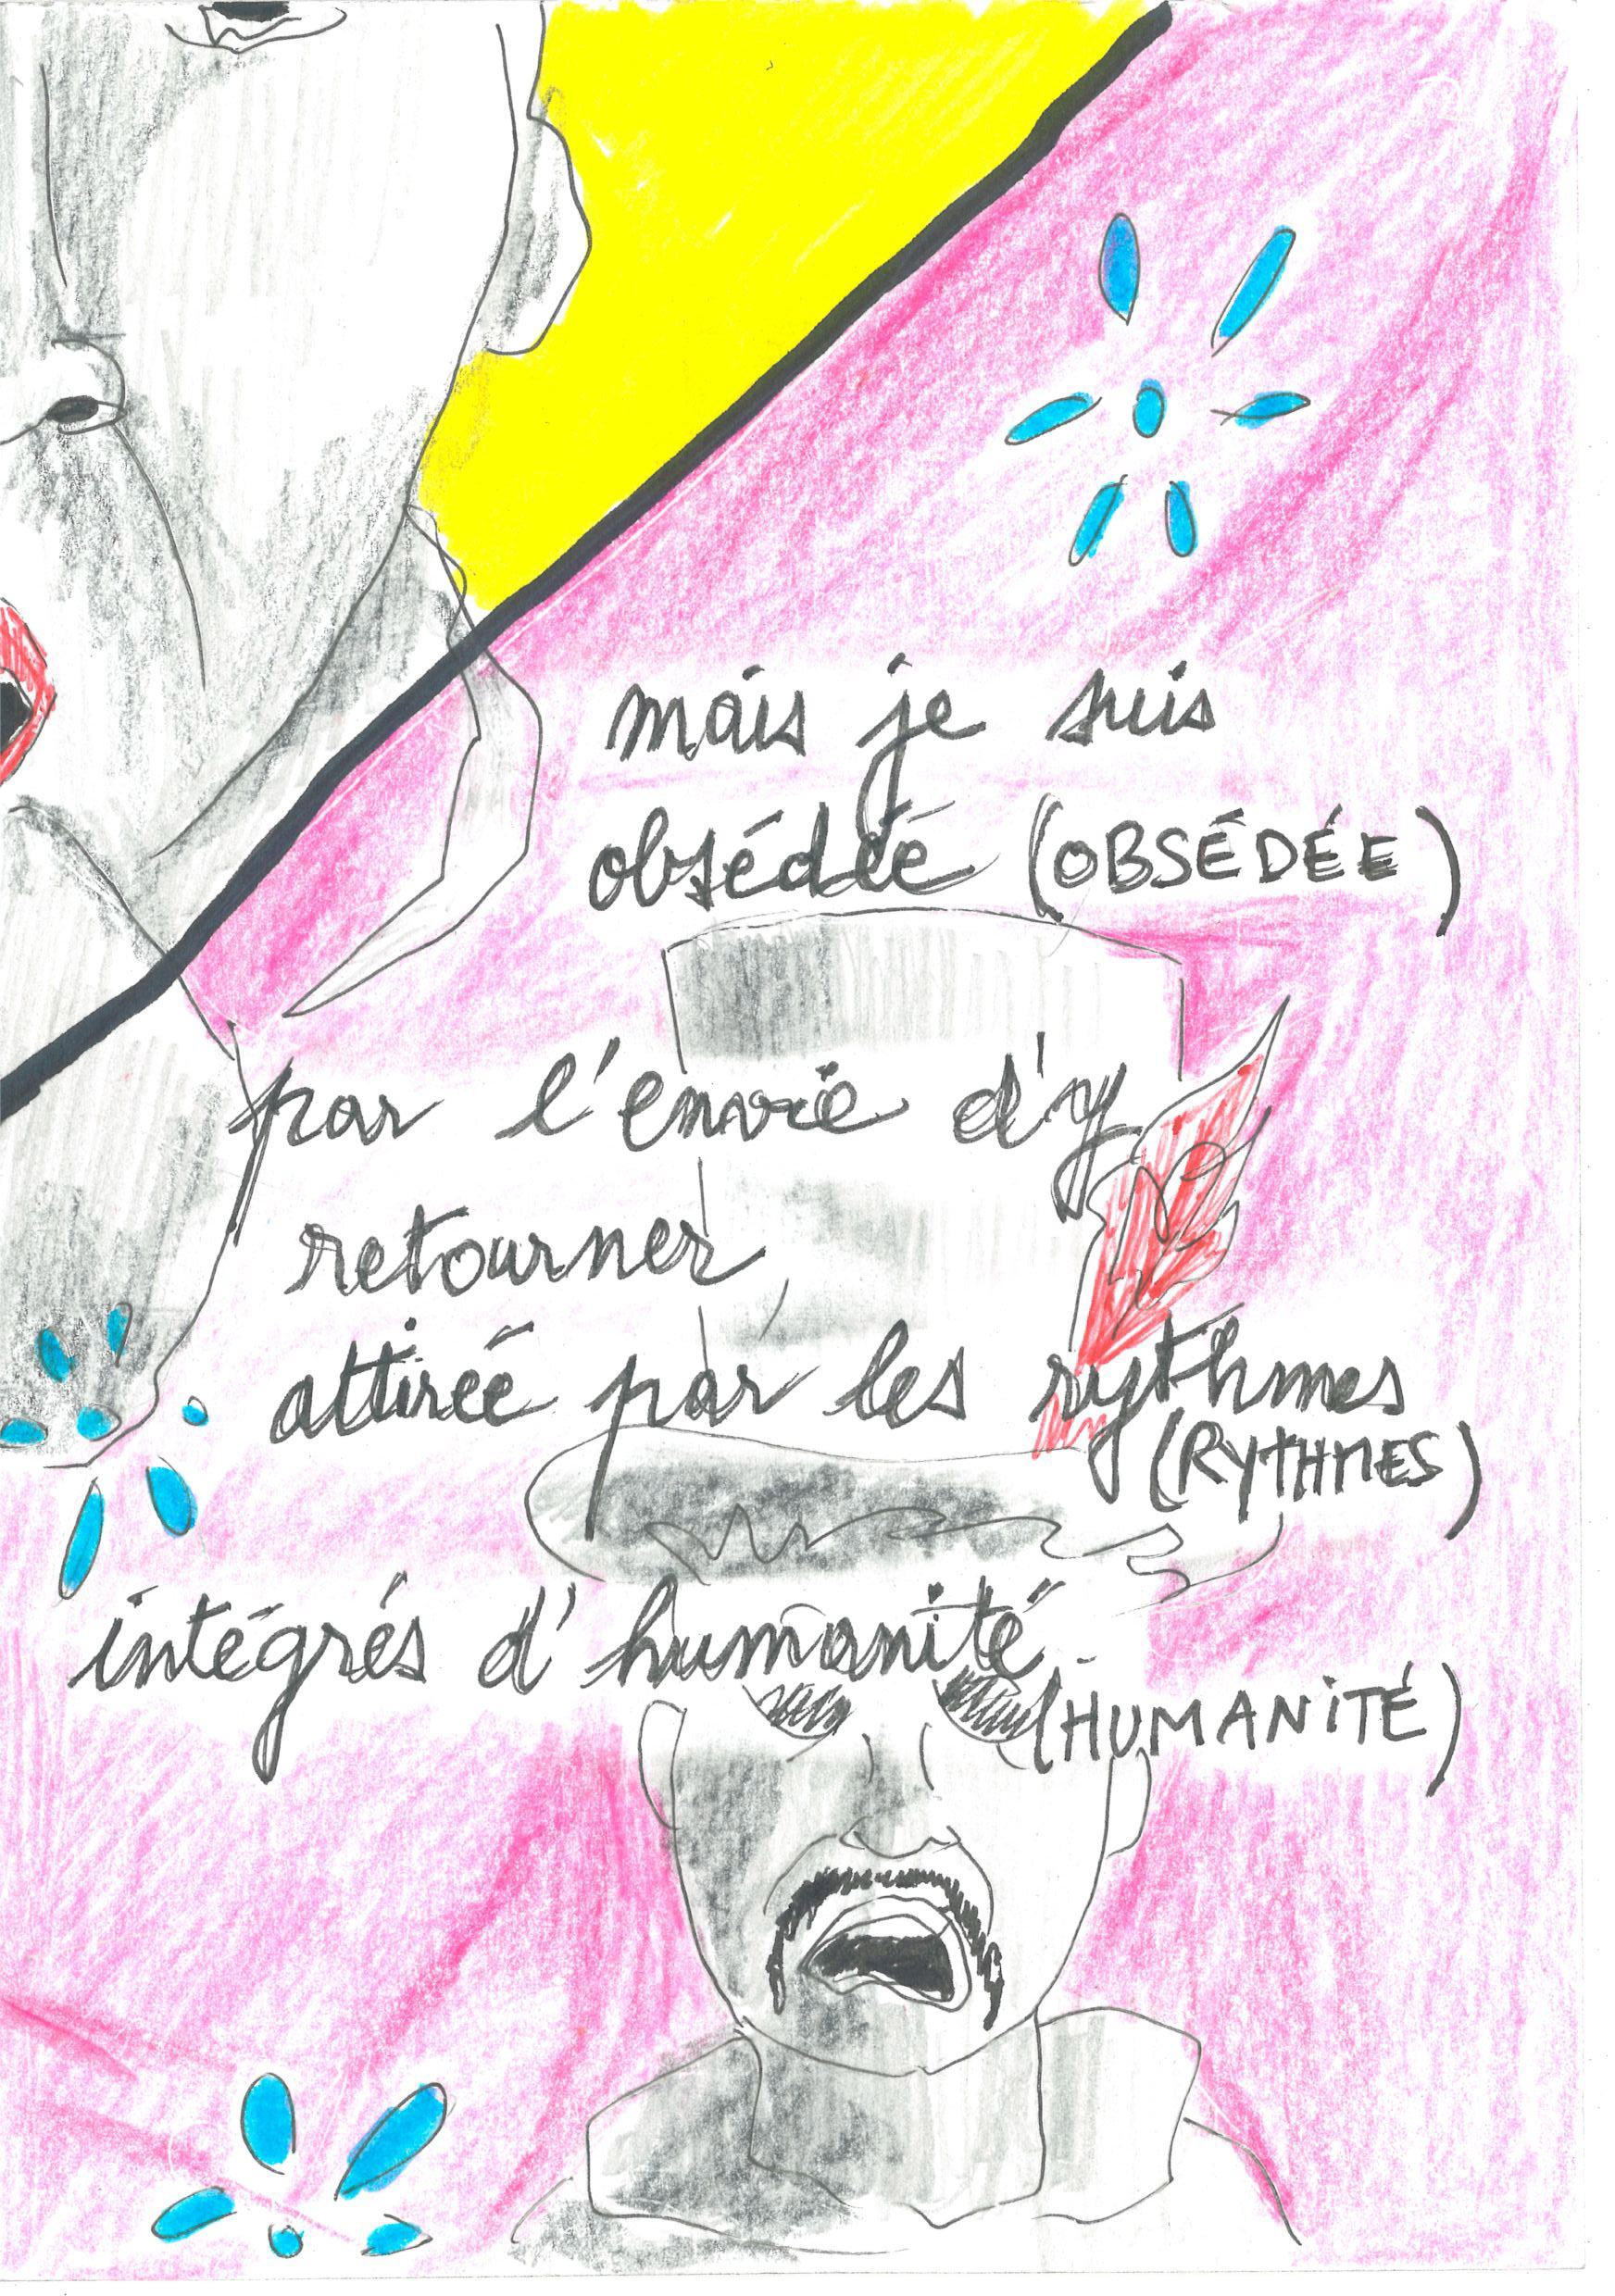 mais je suis
obsédée (OBSÉDÉE)
par l'envie d'y
retourner,
attirée par les rythmes
(RYTHMES)
intégrés d'humanité
(HUMANiTÉ)